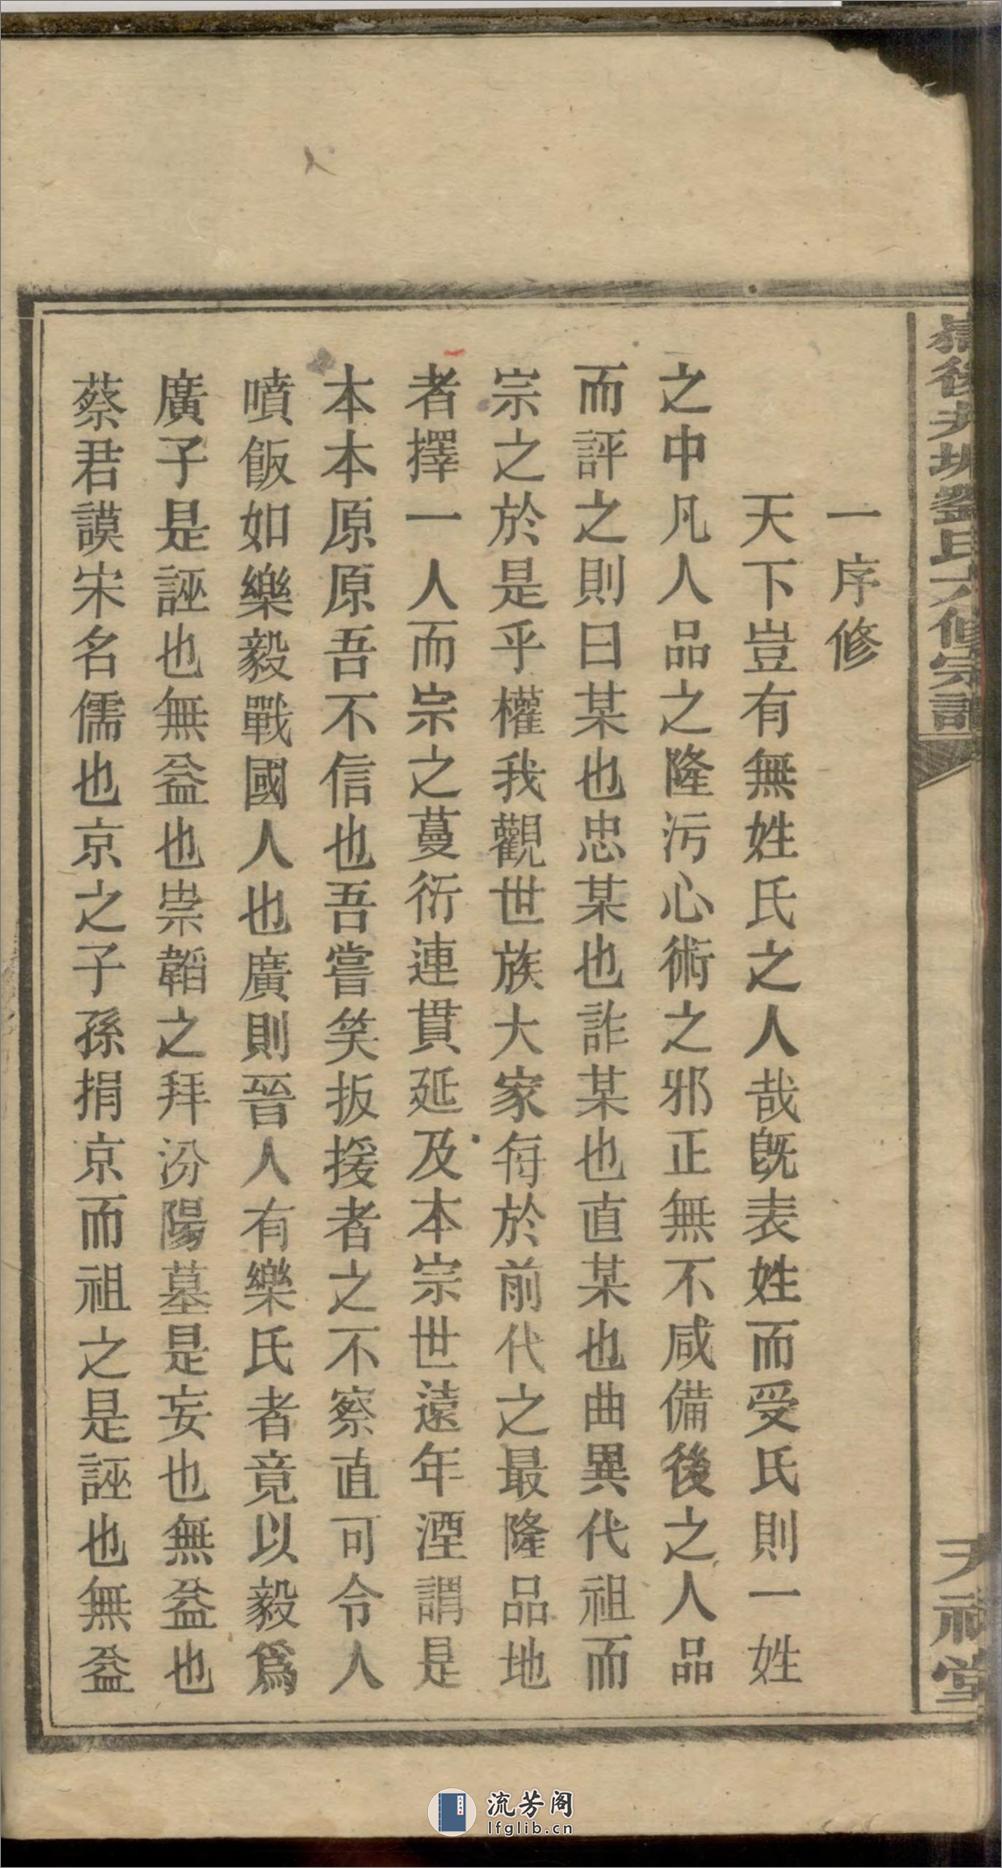 嶽後井塘劉氏六修宗譜
天祿堂
一序修
天下豈有無姓氏之人哉旣表姓而受氏則一姓
之中凡人品之隆污心術之邪正無不咸備後之人品
而評之則曰某也忠某也詐某也直某也曲異代祖而
宗之於是乎權我觀世族大家每於前代之最隆品地
者擇一人而宗之蔓衍連貫延及本宗世遠年湮謂是
本本原原吾不信也吾嘗笑扳援者之不察直可令人
噴飯如樂毅戰國人也廣則晉人有樂氏者竟以毅爲
廣子是誣也無益也崇韜之拜汾陽墓是妄也無益也
蔡君謨宋名儒也京之子孫捐京而祖之是誣也無益
流芳阁
lfglib.cn